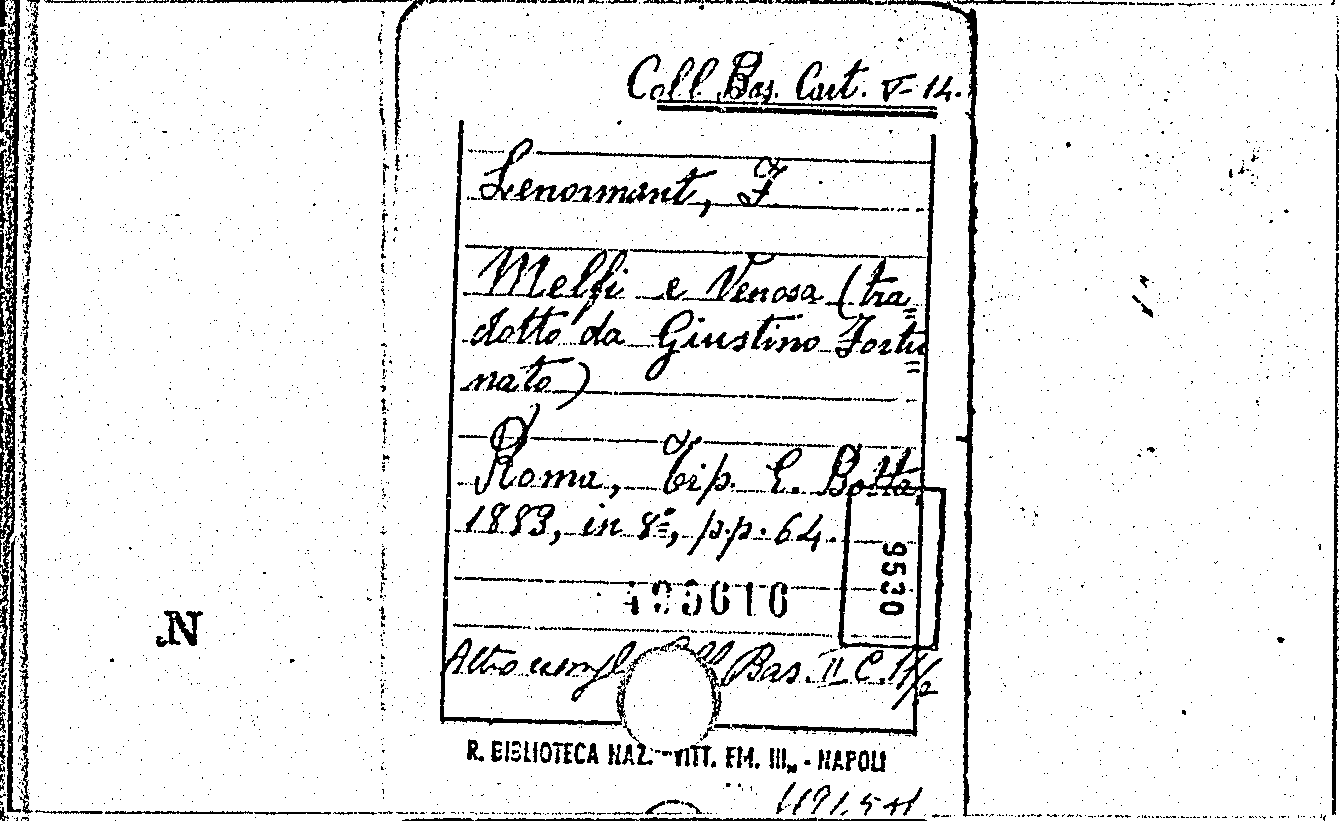 Coll. Bas. Cart. V-14.
Lenormant, F
Melfi e Venosa (tra=
dotto da Giustino Fortu=
nato)
Roma, Tip. E. Botta
1883, in 8º, pp. 64.
9530
495616
.N
Altro Coll Bas. II C.
R. BIBLIOTECA NAZ. "VITT. EM. III„ - NAPOLI